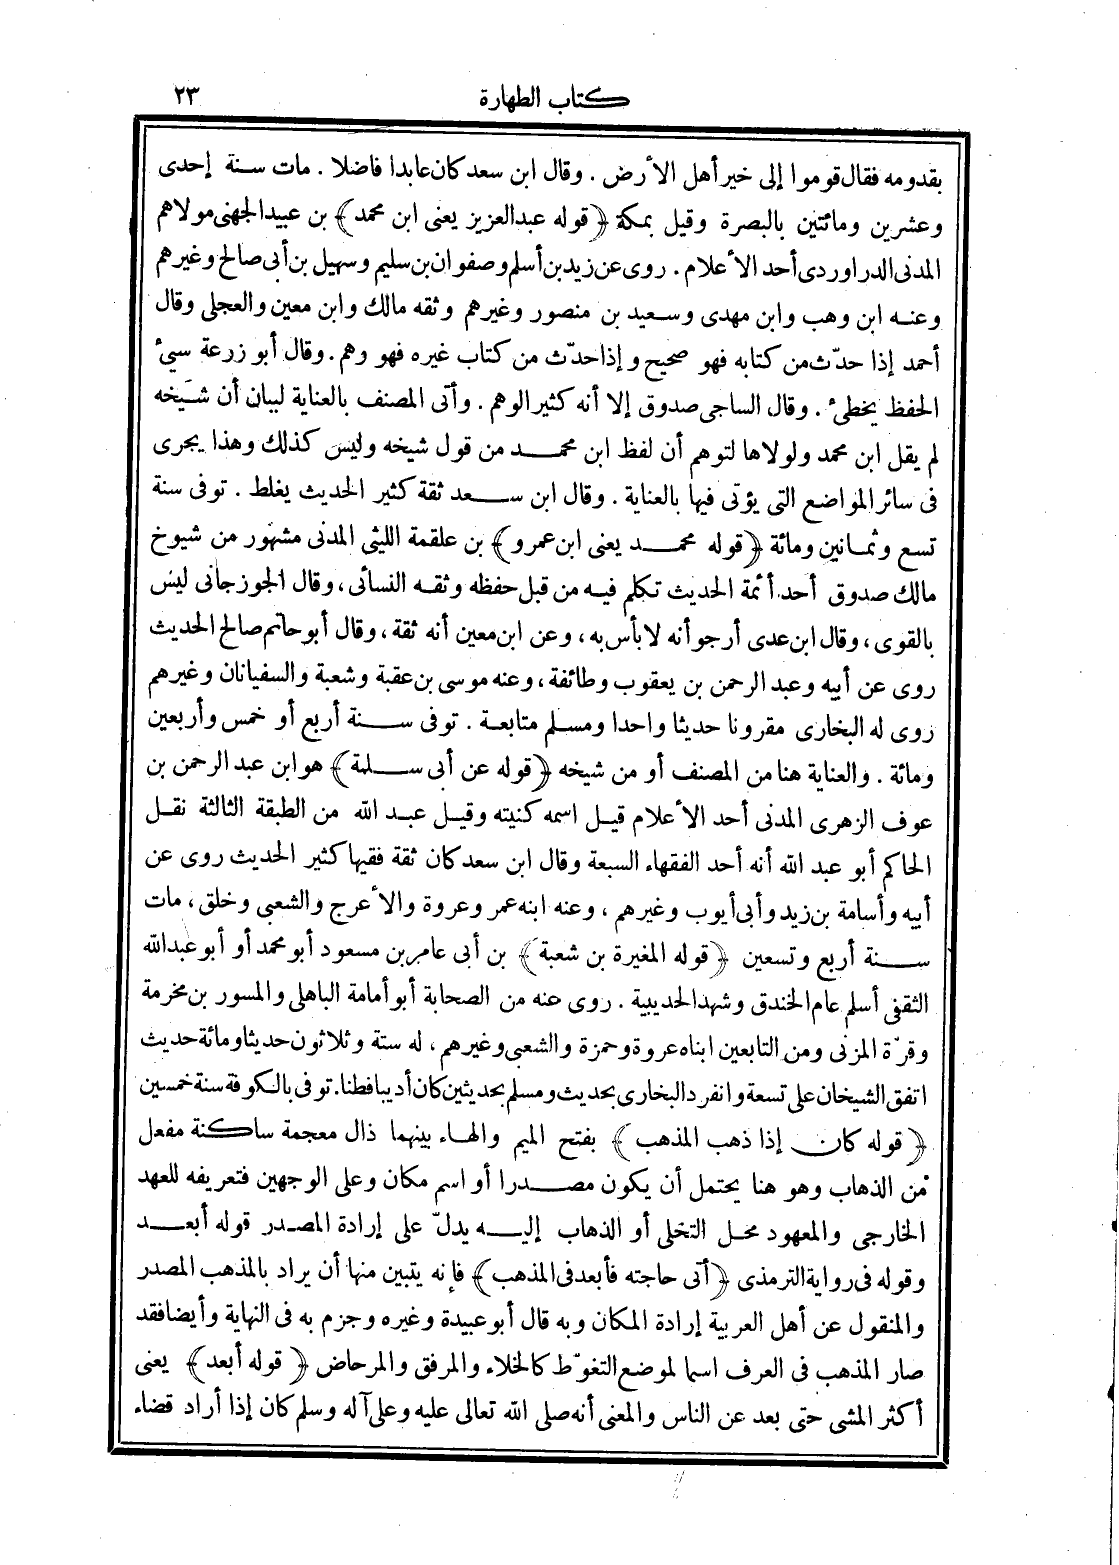 كتاب الطهارة ٢٣
بقدومه فقال قوموا إلى خير أهل الأرض . وقال ابن سعد كان عابدا فاضلا . مات سنة إحدى
وعشرين ومائتين بالبصرة وقيل بمكة ﴿قوله عبدالعزيز يعنى ابن محمد﴾ بن عبيد الجهنى مولاهم
المدنى الدراوردى أحد الأعلام . روى عن زيد بن أسلم وصفوان بن سليم وسهيل بن أبى صالح وغيرهم
وعنه ابن وهب وابن مهدى وسعيد بن منصور وغيرهم وثقه مالك وابن معين والعجلى وقال
أحمد إذا حدّث من كتابه فهو صحيح وإذا حدّث من كتاب غيره فهو وهم . وقال أبو زرعة سيئ
الحفظ يخطئ . وقال الساجى صدوق إلا أنه كثير الوهم . وأتى المصنف بالعناية لبيان أن شيخه
لم يقل ابن محمد ولولاها لتوهم أن لفظ ابن محمد من قول شيخه وليس كذلك وهذا يجرى
فى سائر المواضع التى يؤتى فيها بالعناية . وقال ابن سعد ثقة كثير الحديث يغلط . توفى سنة
تسع وثمانين ومائة ﴿قوله محمد يعنى ابن عمرو﴾ بن علقمة الليثى المدنى مشهور من شيوخ
مالك صدوق أحد أئمة الحديث تكلم فيه من قبل حفظه وثقه النسائى ، وقال الجوزجانى ليس
بالقوى ، وقال ابن عدى أرجو أنه لا بأس به ، وعن ابن معين أنه ثقة ، وقال أبو حاتم صالح الحديث
روى عن أبيه وعبد الرحمن بن يعقوب وطائفة ، وعنه موسى بن عقبة وشعبة والسفيانان وغيرهم
روى له البخارى مقرونا حديثا واحدا ومسلم متابعة . توفى سنة أربع أو خمس وأربعين
ومائة . والعناية هنا من المصنف أو من شيخه ﴿قوله عن أبى سلمة﴾ هو ابن عبد الرحمن بن
عوف الزهرى المدنى أحد الأعلام قيل اسمه كنيته وقيل عبد الله من الطبقة الثالثة نقل
الحاكم أبو عبد الله أنه أحد الفقهاء السبعة وقال ابن سعد كان ثقة فقيها كثير الحديث روى عن
أبيه وأسامة بن زيد وأبى أيوب وغيرهم ، وعنه ابنه عمر وعروة والأعرج والشعبى وخلق ، مات
سنة أربع وتسعين ﴿قوله المغيرة بن شعبة﴾ بن أبى عامر بن مسعود أبو محمد أو أبو عبدالله
الثقفى أسلم عام الخندق وشهد الحديبية . روى عنه من الصحابة أبو أمامة الباهلى والمسور بن مخرمة
وقرّة المزنى ومن التابعين ابناه عروة وحمزة والشعبى وغيرهم ، له ستة وثلاثون حديثا ومائة حديث
اتفق الشيخان على تسعة وانفرد البخارى بحديث ومسلم بحديثين كان أديبا فطنا . توفى بالكوفة سنة خمسين
﴿قوله كان إذا ذهب المذهب﴾ بفتح الميم والهاء بينهما ذال معجمة ساكنة مفعل
من الذهاب وهو هنا يحتمل أن يكون مصدرا أو اسم مكان وعلى الوجهين فتعريفه للعهد
الخارجى والمعهود محل التخلى أو الذهاب إليه يدلّ على إرادة المصدر قوله أبعد
وقوله فى رواية الترمذى ﴿أتى حاجته فأبعد فى المذهب﴾ فإنه يتبين منها أن يراد بالمذهب المصدر
والمنقول عن أهل العربية إرادة المكان وبه قال أبو عبيدة وغيره وجزم به فى النهاية وأيضا فقد
صار المذهب فى العرف اسما لموضع التغوّط كالخلاء والمرفق والمرحاض ﴿قوله أبعد﴾ يعنى
أكثر المشى حتى بعد عن الناس والمعنى أنه صلى الله تعالى عليه وعلى آله وسلم كان إذا أراد قضاء